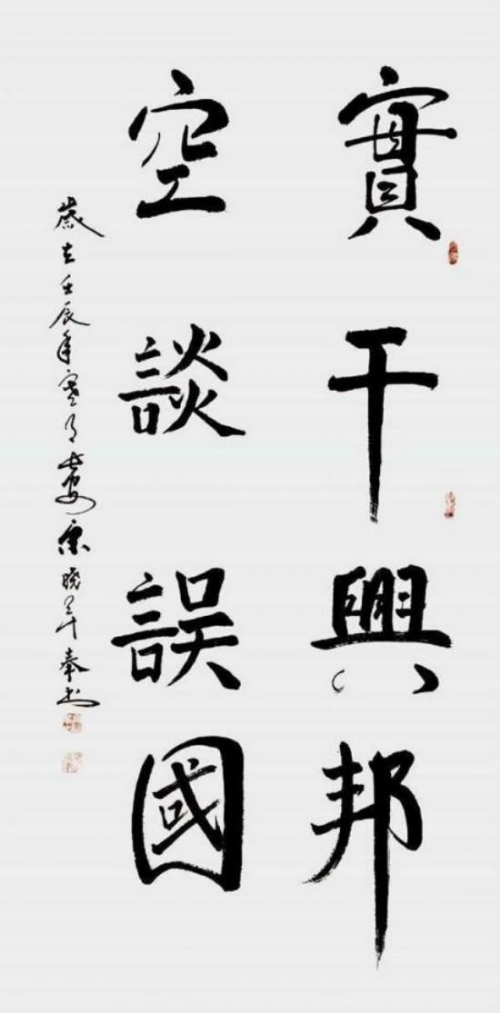 實干興邦
空談誤國
歲在壬辰年寒月
奉书